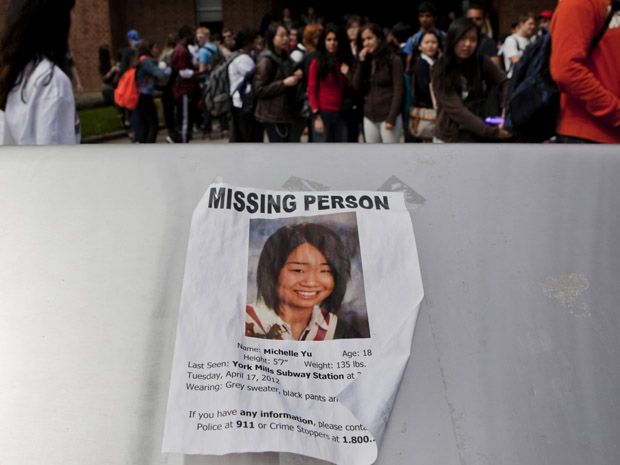 MISSING PERSON
Name: Michelle Yu Age: 18
Height: 5'7" Weight: 135 lbs.
Last Seen: York Mills Subway Station at
Tuesday, April 17, 2012
Wearing: Grey sweater, black pants
If you have any information, please
Police at 911 or Crime Stoppers at 1.800.